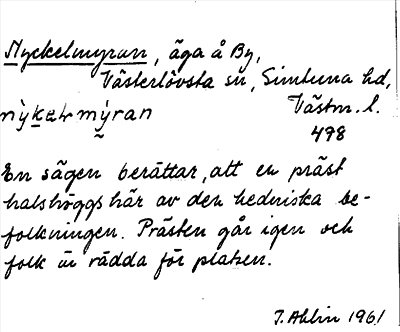 Nyckelmyran, äga å By,
Västerlövsta sn, Simtuna hd,
Västm. l.
498
En sägen berättar, att en präst
halshöggs här av den hedniska be-
folkningen. Prästen går igen och
folk är rädda för platsen.
J. Ahlin 1961